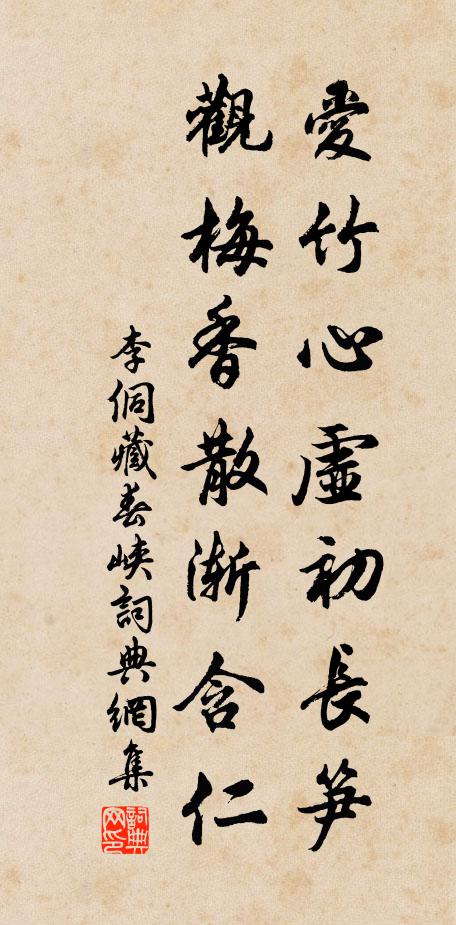 愛竹心虛初長笋
觀梅香散漸含仁
李侗藏春峽詞典網集
詞典网印